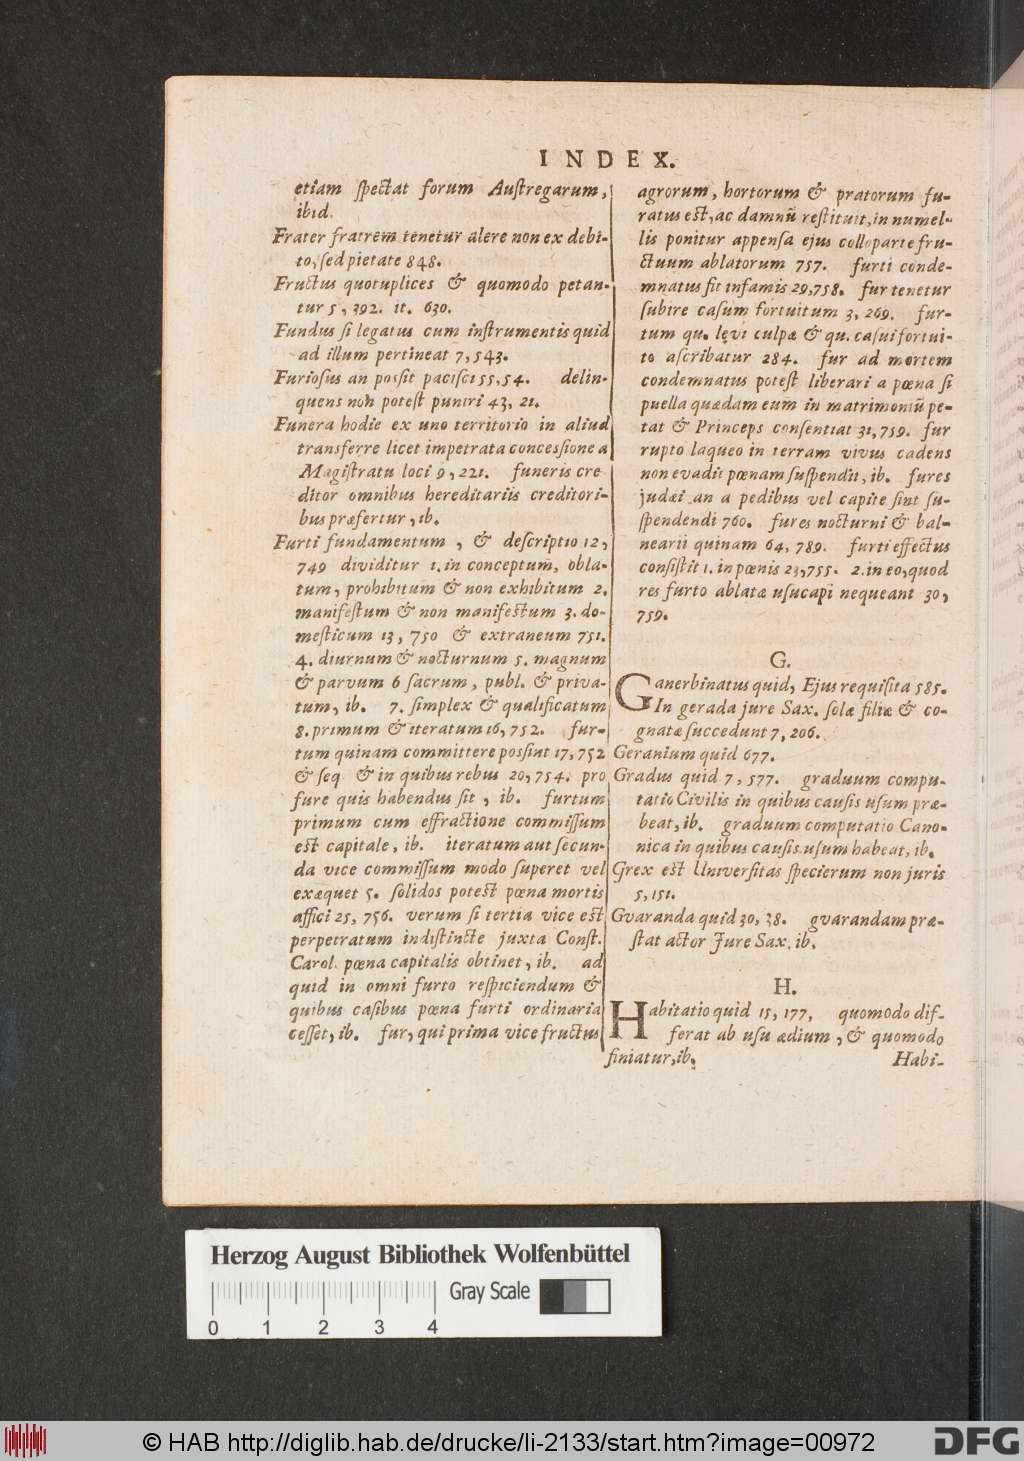 INDEX.
etiam ſpectat forum Auſtregarum,
ibid.
Frater fratrem tenetur alere non ex debi-
to, ſed pietate 848.
Fructus quotuplices & quomodo petan-
tur 5, 392. it. 630.
Fundus ſi legatus cum inſtrumentis quid
ad illum pertineat 7, 543.
Furioſus an poſſit paciſci 55, 54. delin-
quens non poteſt puniri 43, 21.
Funera hodie ex uno territorio in aliud
transferre licet impetrata conceſſione a
Magiſtratu loci 9, 221. funeris cre
ditor omnibus hereditariis creditori-
bus præfertur, ib.
Furti fundamentum, & deſcriptio 12,
749 dividitur 1. in conceptum, obla-
tum, prohibitum & non exhibitum 2.
manifeſtum & non manifeſtum 3. do-
meſticum 13, 750 & extraneum 751.
4. diurnum & nocturnum 5. magnum
& parvum 6 ſacrum, publ. & priva-
tum, ib. 7. ſimplex & qualificatum
8. primum & iteratum 16, 752. fur-
tum quinam committere poſſint 17, 752
& ſeq & in quibus rebus 20, 754. pro
fure quis habendus ſit, ib. furtum
primum cum effractione commiſſum
eſt capitale, ib. iteratum aut ſecun-
da vice commiſſum modo ſuperet vel
exæquet 5. ſolidos poteſt pœna mortis
affici 25, 756. verum ſi tertia vice eſt
perpetratum indiſtincte juxta Conſt.
Carol. pœna capitalis obtinet, ib. ad
quid in omni furto reſpiciendum &
quibus caſibus pœna furti ordinaria
ceſſet, ib. fur, qui prima vice fructus
agrorum, hortorum & pratorum fu-
ratus eſt, ac damnũ reſtituit, in numel-
lis ponitur appenſa ejus collo parte fru-
ctuum ablatorum 757. furti conde-
mnatus ſit infamis 29, 758. fur tenetur
ſubire caſum fortuitum 3, 269. fur-
tum qu. lęvi culpæ & qu. caſui fortui-
to aſcribatur 284. fur ad mortem
condemnatus poteſt liberari a pœna ſi
puella quædam eum in matrimoniũ pe-
tat & Princeps conſentiat 31, 759. fur
rupto laqueo in terram vivus cadens
non evadit pœnam ſuſpendii, ib. fures
judæi an a pedibus vel capite ſint ſu-
ſpendendi 760. fures nocturni & bal-
nearii quinam 64, 789. furti effectus
conſiſtit 1. in pœnis 23, 755. 2. in eo, quod
res furto ablatæ uſucapi nequeant 30,
759.
G.
Ganerbinatus quid, Ejus requiſita 585.
In gerada jure Sax. ſolæ filiæ & co-
gnatæ ſuccedunt 7, 206.
Geranium quid 677.
Gradus quid 7, 577. graduum compu-
tatio Civilis in quibus cauſis uſum præ-
beat, ib. graduum computatio Cano-
nica in quibus cauſis uſum habeat, ib.
Grex eſt Univerſitas ſpecierum non juris
5, 151.
Gvaranda quid 30, 38. gvarandam præ-
ſtat actor Jure Sax. ib.
H.
Habitatio quid 15, 177, quomodo dif-
ferat ab uſu ædium, & quomodo
finiatur, ib.
Habi-
Herzog August Bibliothek Wolfenbüttel
Gray Scale
0 1 2 3 4
© HAB http://diglib.hab.de/drucke/li-2133/start.htm?image=00972
DFG